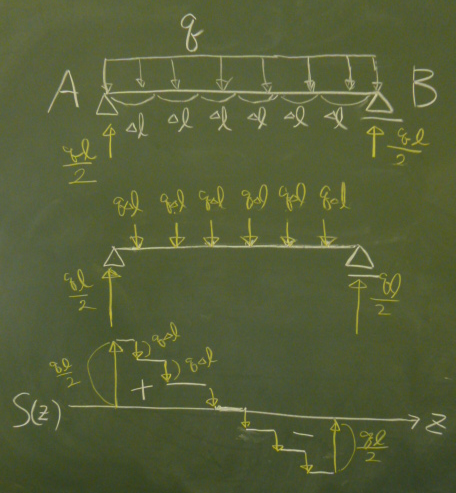 q
A B
Δl Δl Δl Δl Δl Δl
ql/2 ql/2
qΔl qΔl qΔl qΔl qΔl qΔl
ql/2 ql/2
qΔl
ql/2 + qΔl
S(z) z
− ql/2